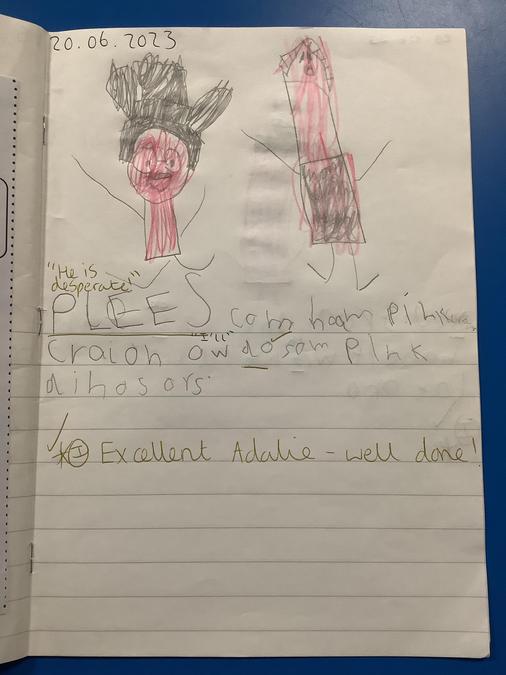 20.06.2023
"He is
desperate!"
PLEES com hoam pink
Craion ow "I'll" do som pink
dinosors.
I Excellent Adalie - well done!